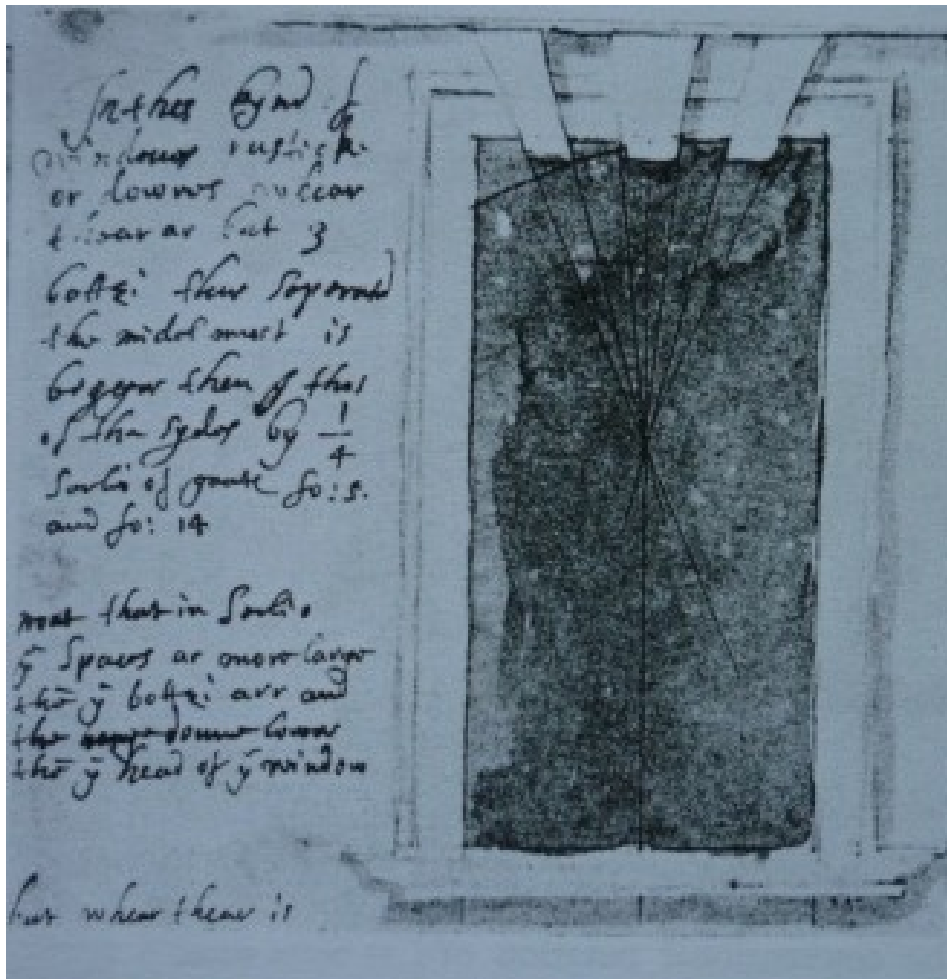 In thes kynd of
windows rustick
or
thear ar but 3
bottzi thus seperated
the midelmust is
bigger then yͤ thos
of the sydes by 1/4
Serlio of gaate fo: 5.
and fo: 14
noat that in Serlio
ȳ Spaces ar more larger
thē ȳ bottzi arr and
the lower
thē ȳ head of ȳ window
but whear thear is